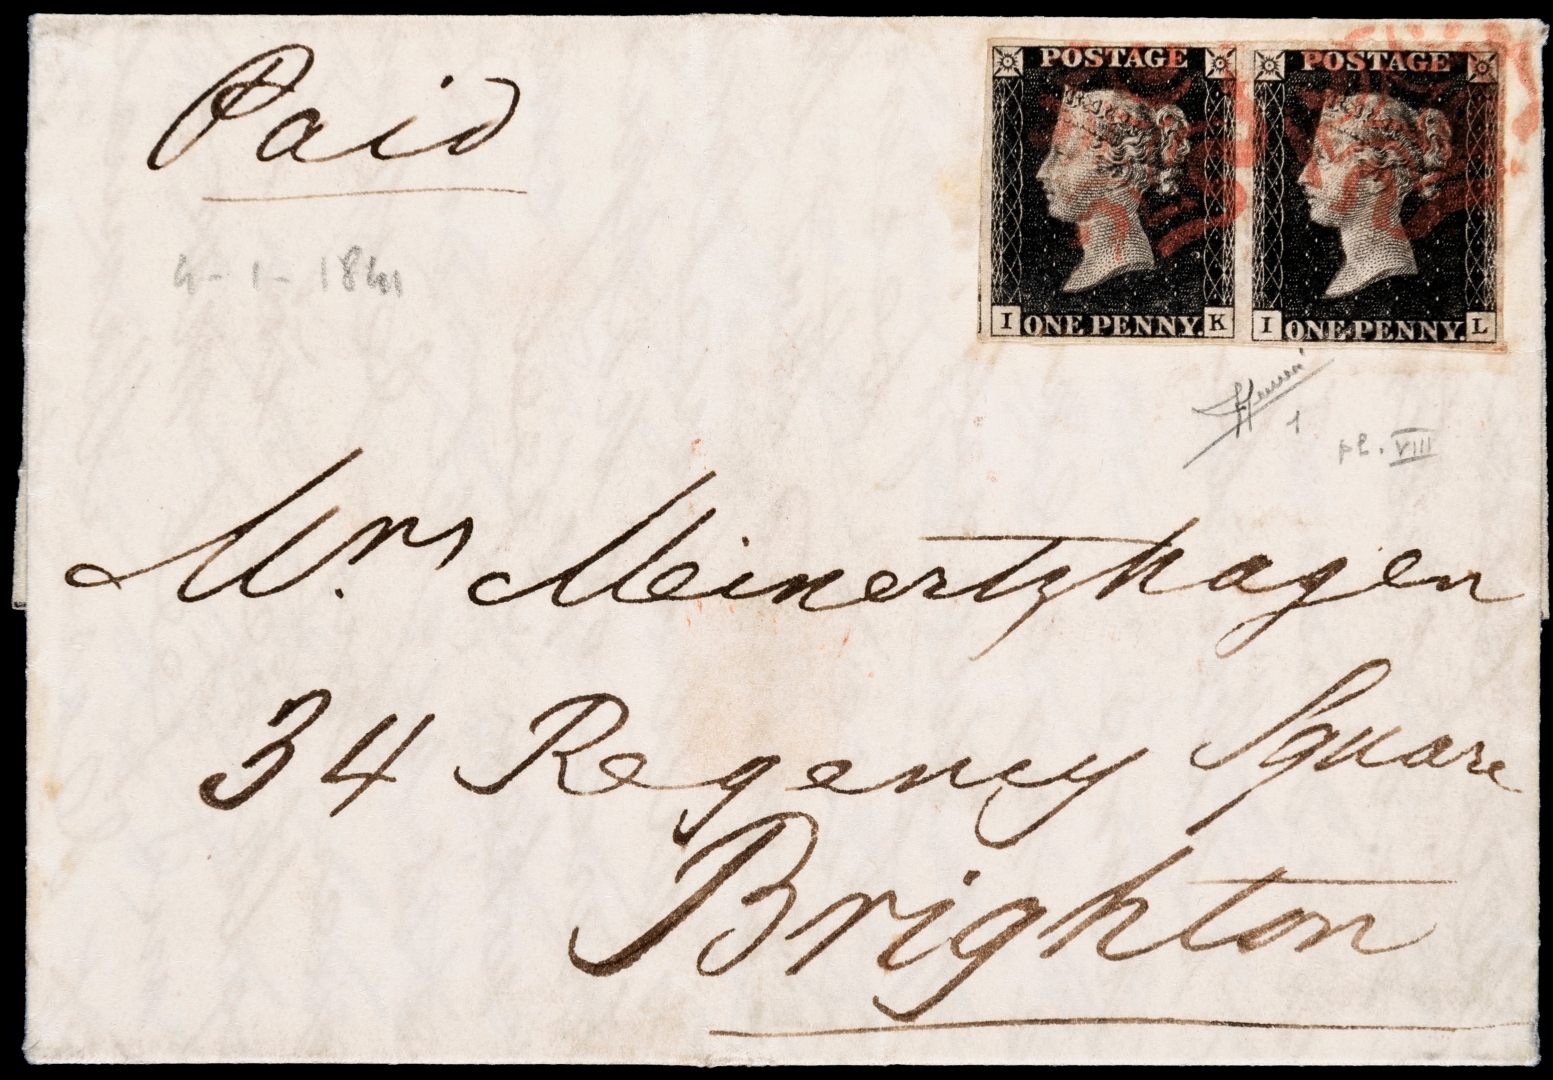 Paid
4-1-1841
POSTAGE POSTAGE
I ONE PENNY. K I ONE PENNY. L
1
pl. VIII
Mrs. Meinertzhagen
34 Regency Square
Brighton